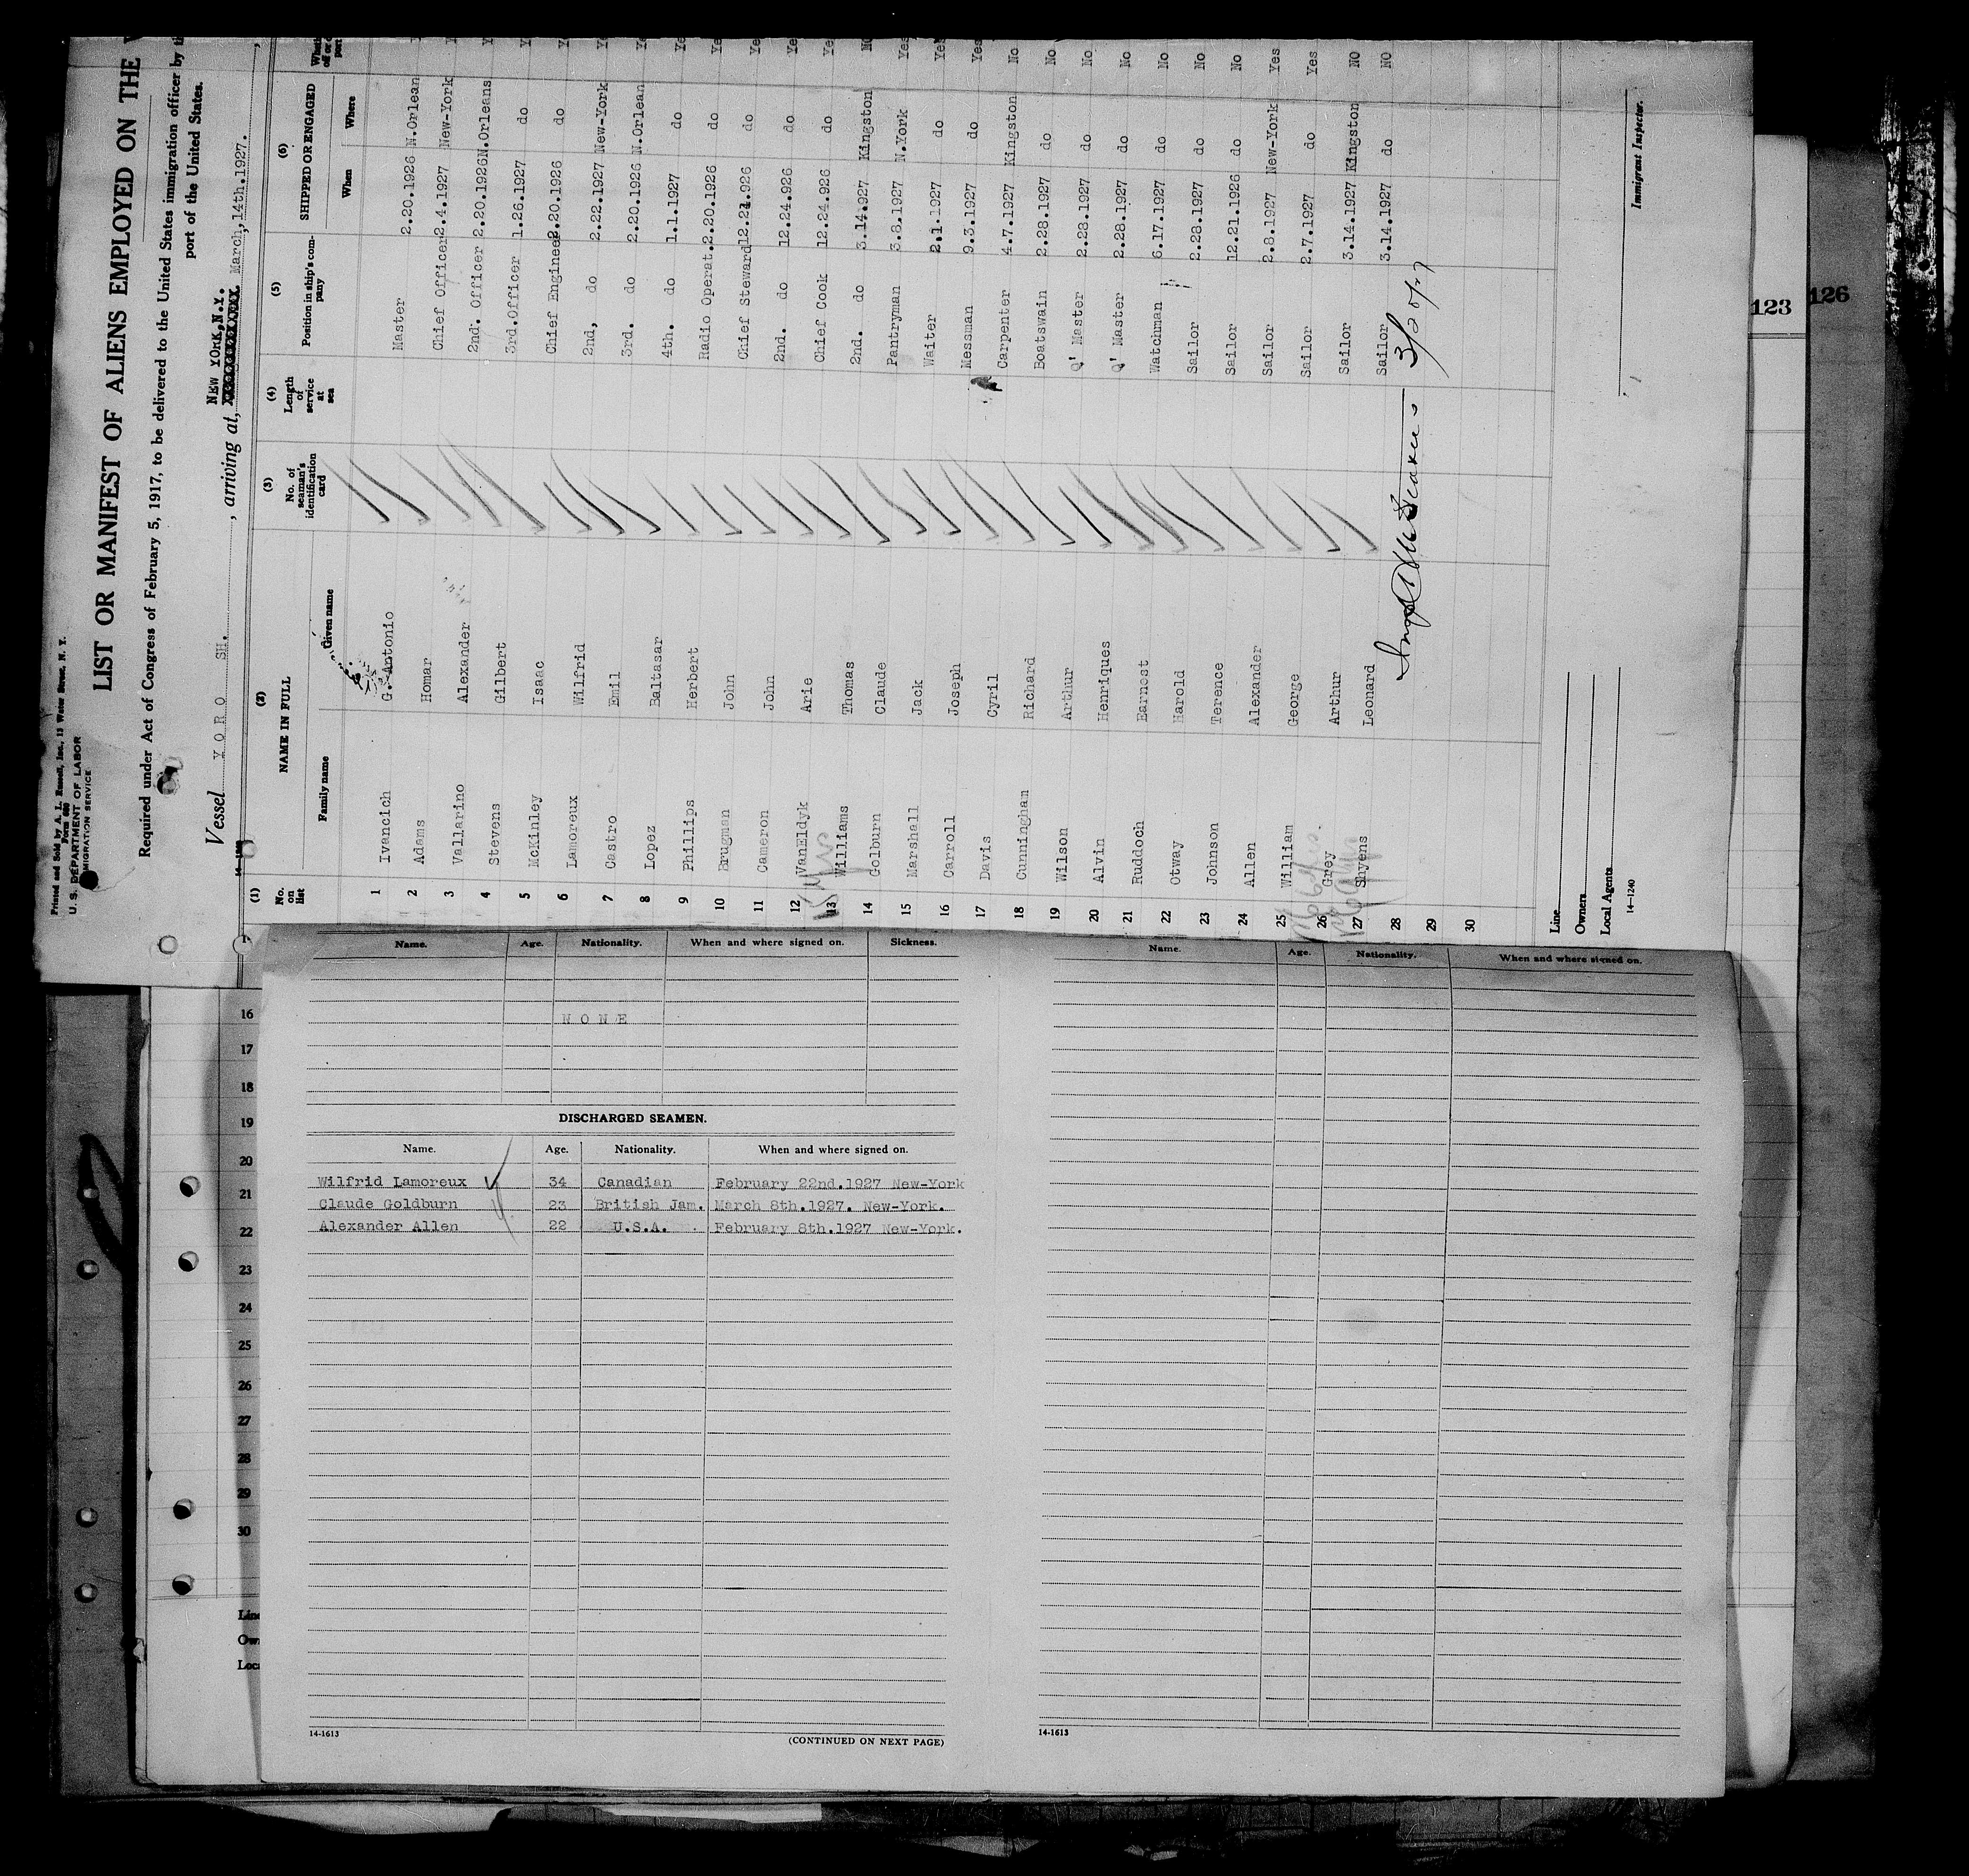 Printed and Sold by A. L. Russell, Inc., 15 Water Street, N. Y.
Form 680
U. S. DEPARTMENT OF LABOR
IMMIGRATION SERVICE
LIST OR MANIFEST OF ALIENS EMPLOYED ON THE
Required under Act of Congress of February 5, 1917, to be delivered to the United States immigration officer by
port of the United States.
NEW YORK,N.Y.
Vessel YORO SH. , arriving at, March,14th.1927.
(1) No. on list (2) NAME IN FULL Family name Given name (3) No. of seaman's identification card (4) Length of service at sea (5) Position in ship's company (6) SHIPPED OR ENGAGED When Where
1 Ivancich G. Antonio Master 2.20.1926 N.Orlean
2 Adams Homar Chief Officer 2.4.1927 New-York
3 Vallarino Alexander 2nd. Officer 2.20.1926 N.Orleans
4 Stevens Gilbert 3rd.Officer 1.26.1927 do
5 McKinley Isaac Chief Engineer 2.20.1926 do
6 Lamoreux Wilfrid 2nd, do 2.22.1927 New-York
7 Castro Emil 3rd. do 2.20.1926 N.Orlean
8 Lopez Baltasar 4th. do 1.1.1927 do
9 Phillips Herbert Radio Operat. 2.20.1926 do
10 Brugman John Chief Steward 12.24.926 do
11 Cameron John 2nd. do 12.24.926 do
12 VanEldyk Arie Chief Cook 12.24.926 do
13 Williams Thomas 2nd. do 3.14.927 Kingston NO
14 Golburn Claude Pantryman 3.8.1927 N.York Yes
15 Marshall Jack Waiter 2.1.1927 do Yes
16 Carroll Joseph Messman 9.3.1927 do Yes
17 Davis Cyril Carpenter 4.7.1927 Kingston No
18 Cunninghan Richard Boatswain 2.28.1927 do No
19 Wilson Arthur Q' Master 2.28.1927 do No
20 Alvin Henriques Q' Master 2.28.1927 do No
21 Ruddoch Earnest Watchman 6.17.1927 do No
22 Otway Harold Sailor 2.28.1927 do No
23 Johnson Terence Sailor 12.21.1926 do No
24 Allen Alexander Sailor 2.8.1927 New-York Yes
25 William George Sailor 2.7.1927 do Yes
26 Grey Arthur Sailor 3.14.1927 Kingston NO
27 Shyens Leonard Sailor 3.14.1927 do NO
28
29
30
Line
Owners
Local Agents
14—1240
Immigrant Inspector.
123
126
Name. Age. Nationality. When and where signed on. Sickness.
NONE
DISCHARGED SEAMEN.
Name. Age. Nationality. When and where signed on.
Wilfrid Lamoreux 34 Canadian February 22nd.1927 New-York
Claude Goldburn 23 British Jam. March 8th.1927. New-York.
Alexander Allen 22 U.S.A. February 8th.1927 New-York.
14-1613
(CONTINUED ON NEXT PAGE)
Name. Age. Nationality. When and where signed on.
14-1613
16
17
18
19
20
21
22
23
24
25
26
27
28
29
30